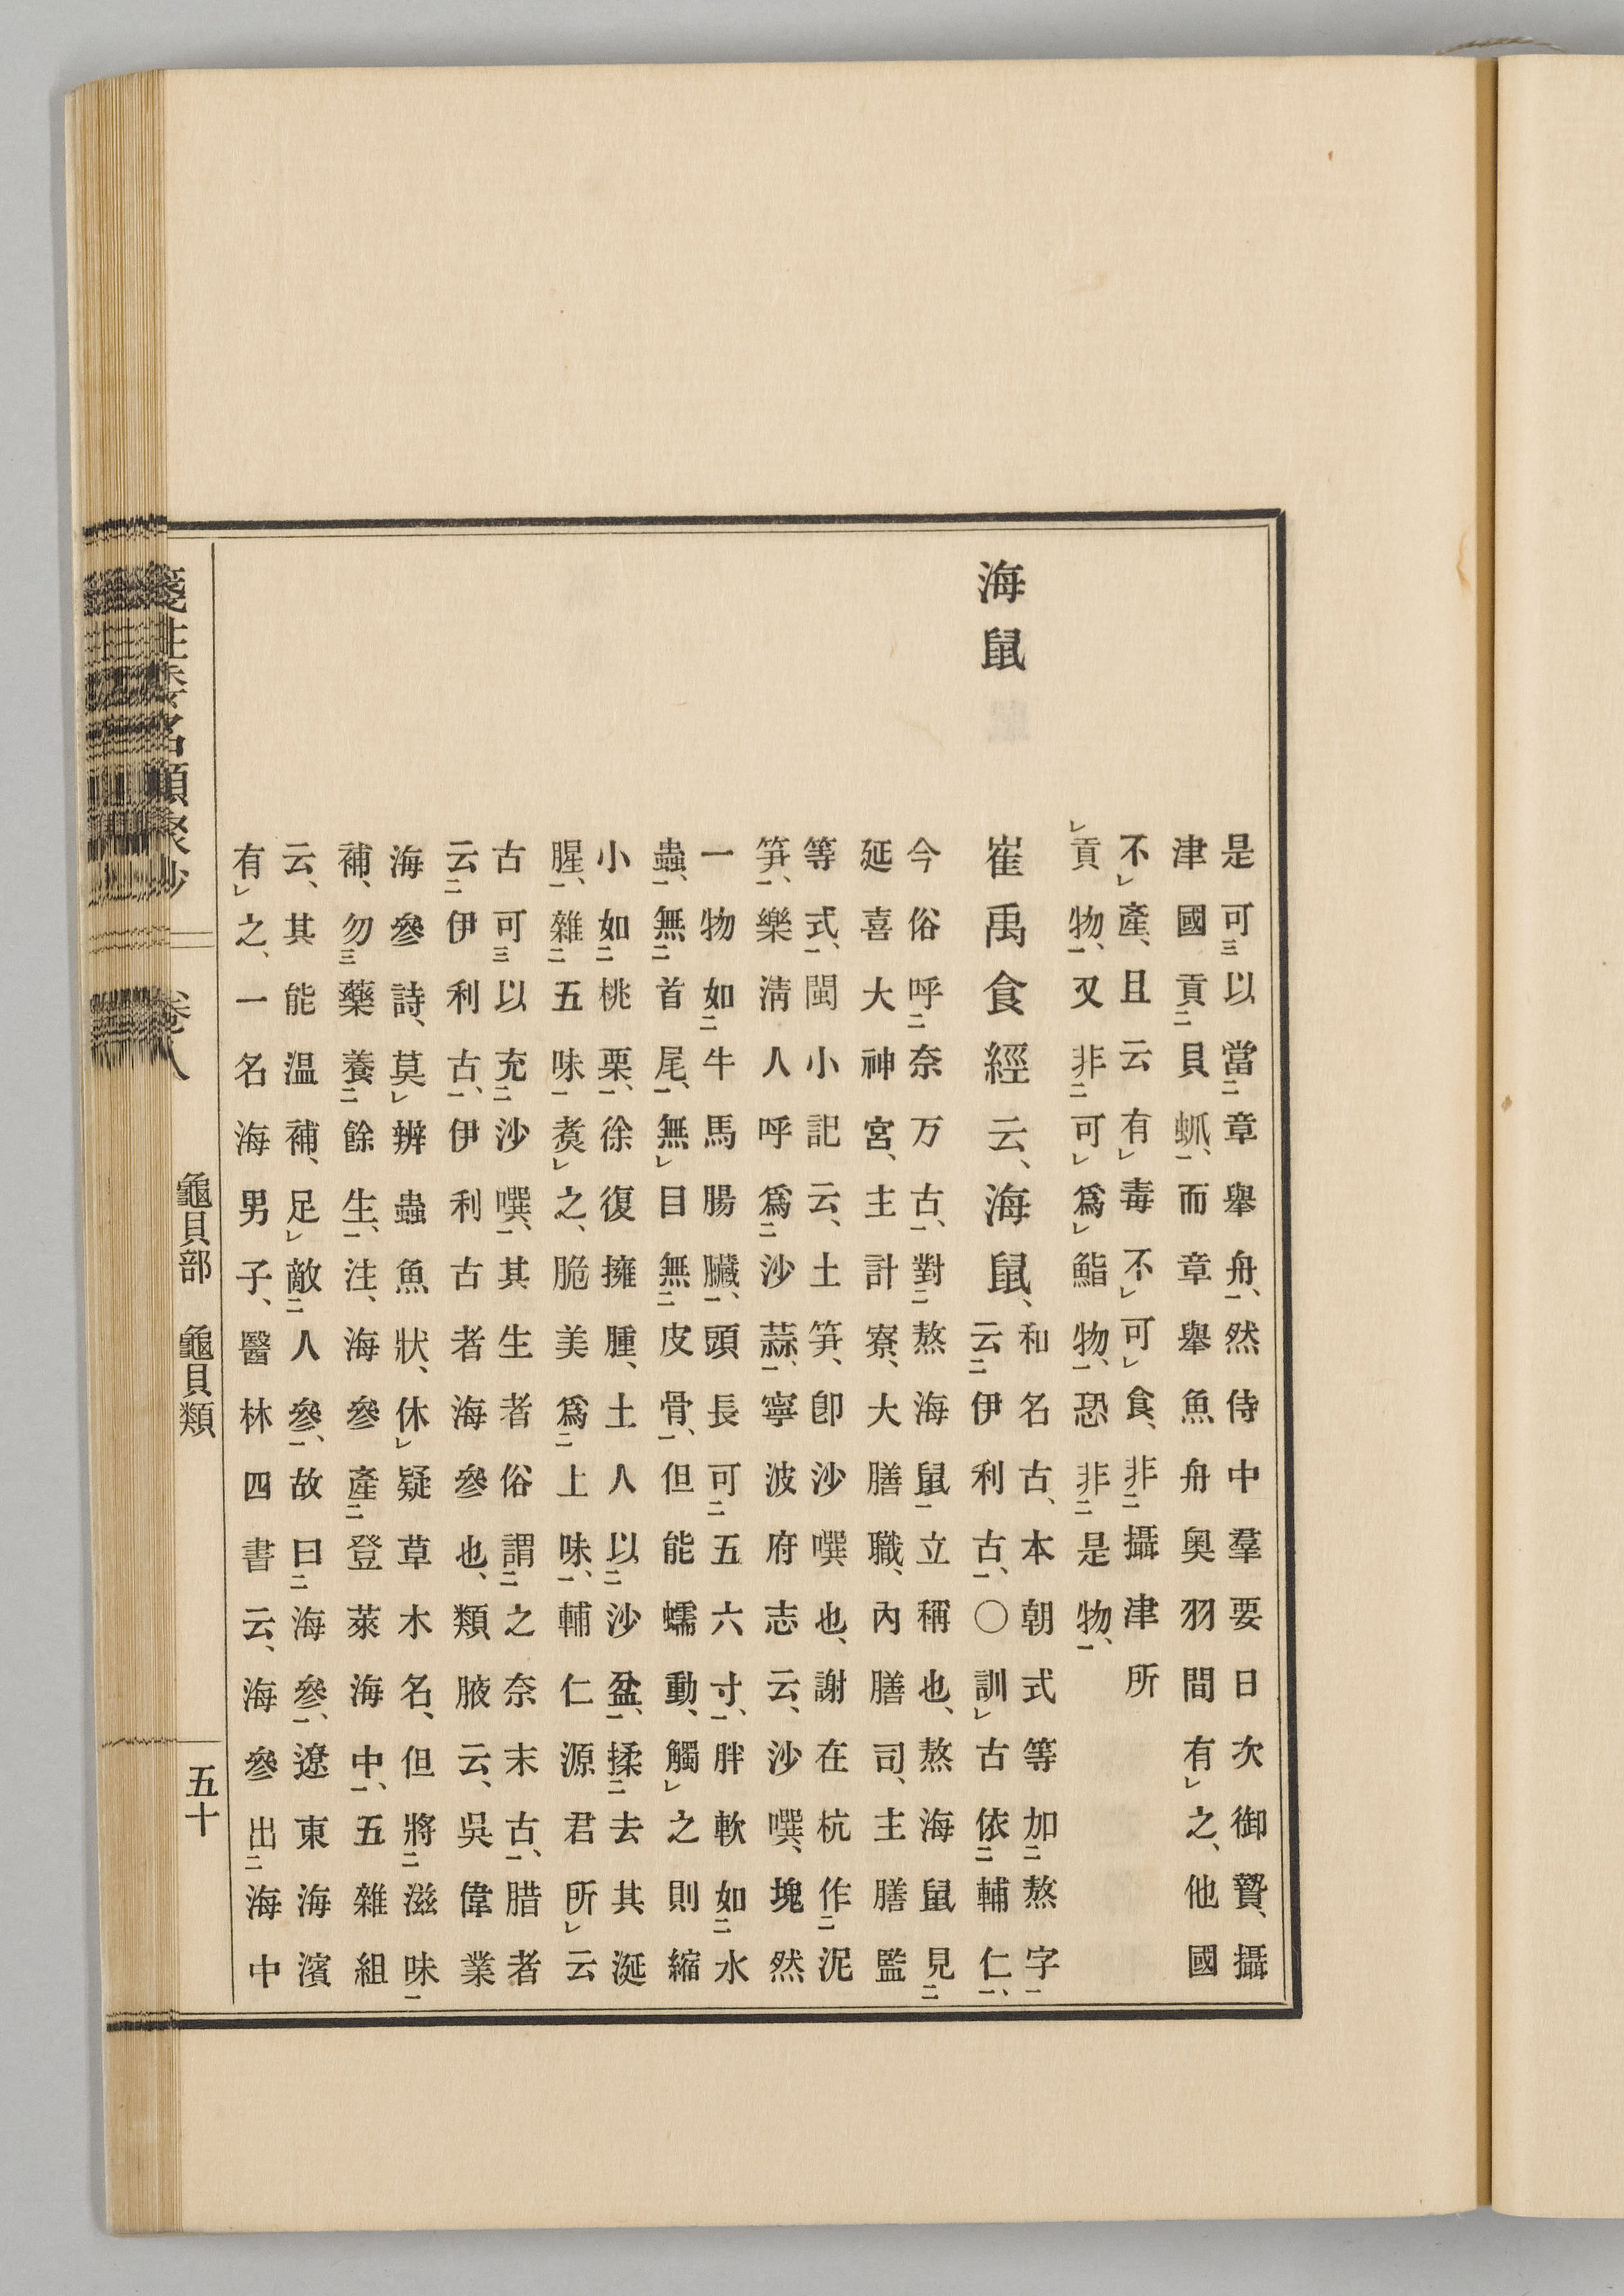 是可以當章舉舟、然侍中羣要日次御贄、攝
津國貢貝、而章舉魚舟奥羽間有之、他國
不產、且云有毒不可食、非攝津所
貢物、又非可爲鮨物、恐非是物、
海鼠
崔禹食經云、海鼠、
和名古、本朝式等加熬字
云伊利古、〇訓古依輔仁、
今俗呼奈万古、對熬海鼠立稱也、熬海鼠見
延喜大神宮、主計寮、大膳職、內膳司、主膳監
等式、閩小記云、土笋、卽沙噀也、謝在杭作泥
笋、樂淸人呼爲沙蒜、寧波府志云、沙噀、塊然
一物如牛馬腸臟、頭長可五六寸、胖軟如水
蟲、無首尾、無目無皮骨、但能蠕動、觸之則縮
小如桃栗、徐復擁腫、土人以沙盆、揉去其涎
腥、雜五味煮之、脆美爲上味、輔仁源君所云
古可以充沙噀、其生者俗謂之奈末古、腊者
云伊利古、伊利古者海參也、類腋云、吳偉業
海參詩、莫辨蟲魚狀、休疑草木名、但將滋味
補、勿藥養餘生、注、海參產登萊海中、五雜組
云、其能温補、足敵人參、故曰海參、遼東海濱
有之、一名海男子、醫林四書云、海參出海中
箋注倭名類聚抄 卷八 龜貝部 龜貝類 五十